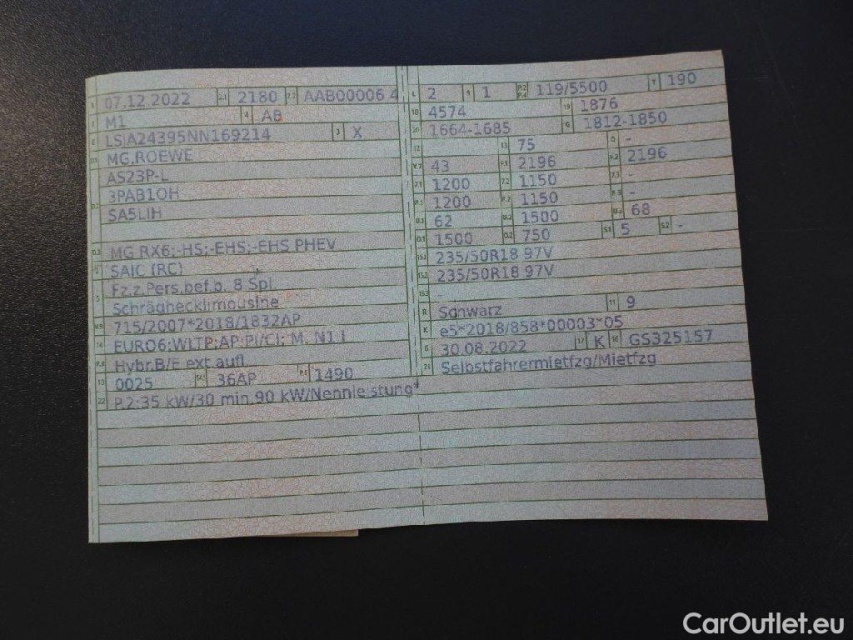 07.12.2022 2180 AAB00006 4
M1 4 AB
LSJA24395NN169214 3 X
MG.ROEWE
AS23P-L
3PAB1OH
SA5LIH
MG RX6;-HS;-EHS;-EHS PHEV
SAIC (RC)
Fz.z.Pers.bef.b. 8 Spl
Schräghecklimousine
715/2007*2018/1832AP
EURO6;WLTP;AP;PI/CI; M, N1 I
Hybr.B/E ext.aufl
0025 36AP 1490
P.2:35 kW/30 min.90 kW/Nennleistung
2 1 119/5500 190
4574 1876
1664-1685 1812-1850
75 -
43 2196 2196
1200 1150 -
1200 1150 -
62 1500 68
1500 750 5 -
235/50R18 97V
235/50R18 97V
-
Schwarz 11 9
e5*2018/858*00003*05
30.08.2022 17 K 16 GS325157
21 Selbstfahrermietfzg/Mietfzg
22
CarOutlet.eu